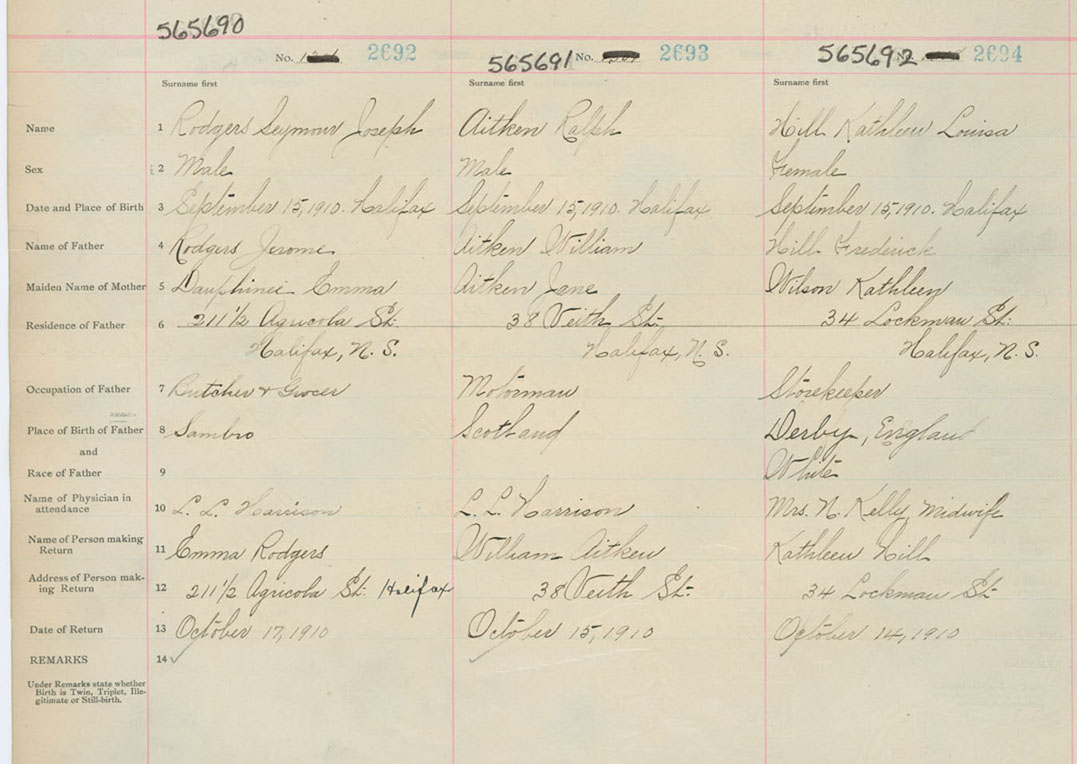 565690
No. 2692
565691 No. 2693
565692 No. 2694
Surname first
Surname first
Surname first
Name 1 Rodgers Seymour Joseph Aitken Ralph Hill Kathleen Louisa
Sex 2 Male Male Female
Date and Place of Birth 3 September 15, 1910. Halifax September 15, 1910. Halifax September 15, 1910. Halifax
Name of Father 4 Rodgers Jerome Aitken William Hill Frederick
Maiden Name of Mother 5 Dauphinee Emma Aitken Jane Wilson Kathleen
Residence of Father 6 211 1/2 Agricola St. 38 Veith St. 34 Lockman St.
Halifax, N. S. Halifax, N. S. Halifax, N. S.
Occupation of Father 7 Butcher & Grocer Motorman Storekeeper
Place of Birth of Father 8 Sambro Scotland Derby, England
and
Race of Father 9 White
Name of Physician in
attendance 10 L. L. Harrison L. L. Harrison Mrs. N. Kelly, Midwife
Name of Person making
Return 11 Emma Rodgers William Aitken Kathleen Hill
Address of Person mak-
ing Return 12 211 1/2 Agricola St. Halifax 38 Veith St. 34 Lockman St.
Date of Return 13 October 17, 1910 October 15, 1910 October 14, 1910
REMARKS 14 ✓
Under Remarks state whether
Birth is Twin, Triplet, Ille-
gitimate or Still-birth.